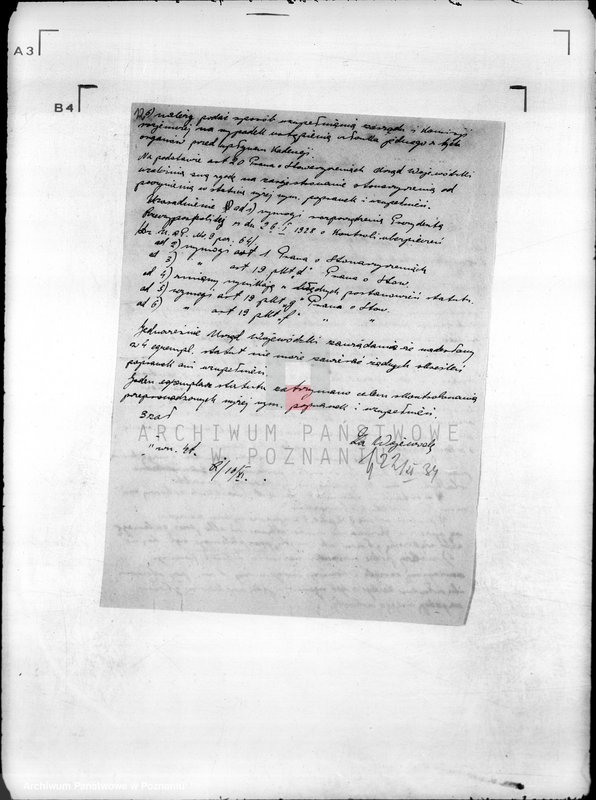 A3
B4
6) należy podać sposób uzupełnienia zarządu i Komisji
rewizyjnej na wypadek ustąpienia członka jednego z tych
organów przed upływem kadencji.
Na podstawie art 20 Prawa o Stowarzyszeniach Urząd Wojewódzki
uzależnia swą na zarejestrowanie stowarzyszenia od
poczynienia w statucie wyżej wym. poprawek i uzupełnień.
Uzasadnienie ad 1) wymogi rozporządzenia Prezydenta
Rzeczypospolitej z dn 26 I 1928 o Kontroli ubezpieczeń
Dz. U. R.P. No 9 poz. 64/
ad 2) wymogi art 1 Prawa o Stowarzyszeniach
ad 3) " art 19 pkt "d" Prawa o Stow.
ad 4) zmiany wynikają z postanowień statutu.
ad 5) wymogi art 19 pkt "g" Prawa o Stow.
ad 6) " art 19 pkt "f" " "
Jednocześnie Urząd Wojewódzki zawiadamia że nadesłany
w 4 egzempl. statut nie może zawierać żadnych skreśleń
poprawek ani uzupełnień.
Jeden egzemplarz statutu zatrzymano celem skontrolowania
przeprowadzonych wyżej wym. poprawek i uzupełnień.
3 zał
Za Wojewodę
22/XI 34
10/XI.
ARCHIWUM PAŃSTWOWE
W POZNANIU
Archiwum Państwowe w Poznaniu